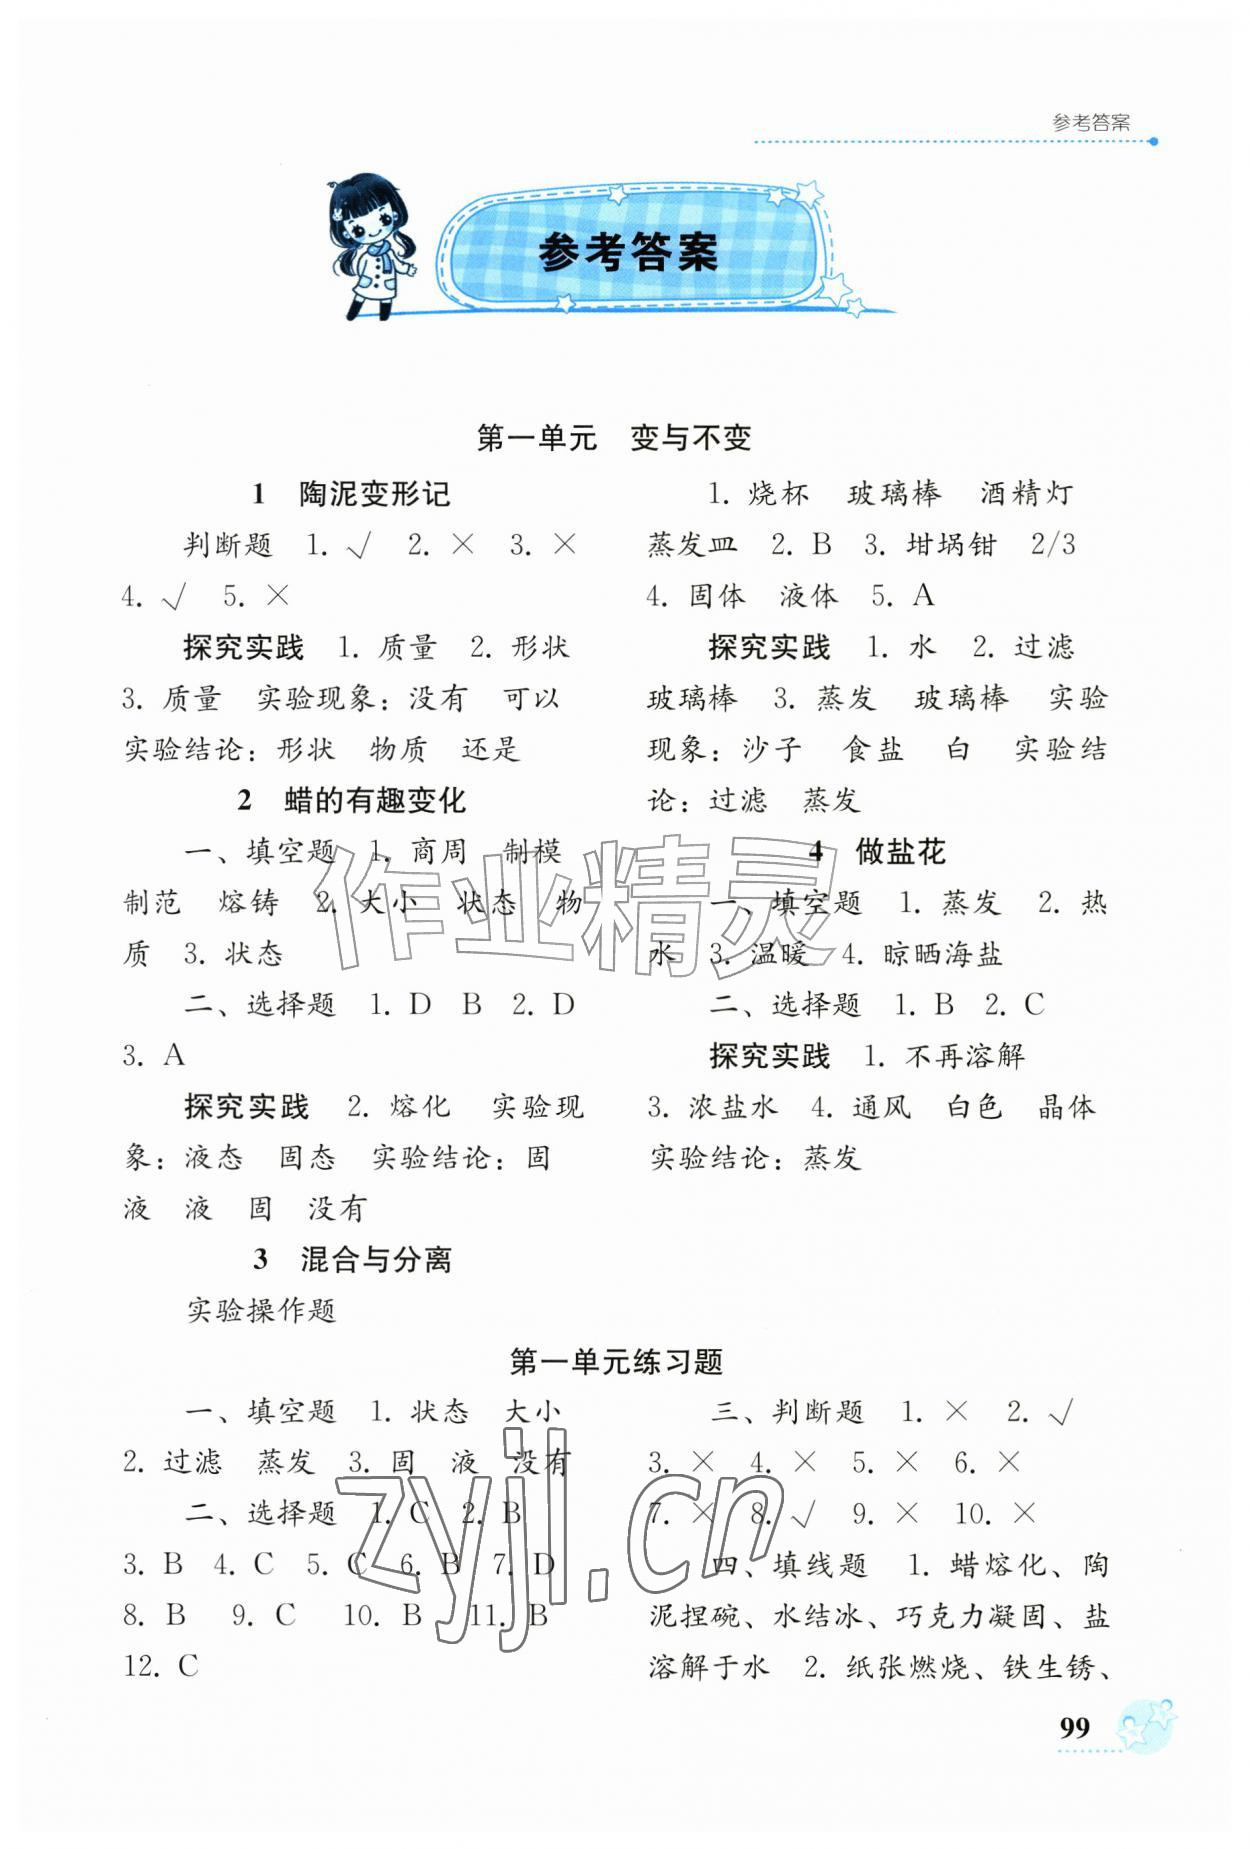 参考答案
参考答案
第一单元 变与不变
1 陶泥变形记
判断题 1. √ 2. × 3. ×
4. √ 5. ×
探究实践 1. 质量 2. 形状
3. 质量 实验现象：没有 可以
实验结论：形状 物质 还是
2 蜡的有趣变化
一、填空题 1. 商周 制模
制范 熔铸 2. 大小 状态 物
质 3. 状态
二、选择题 1. D B 2. D
3. A
探究实践 2. 熔化 实验现
象：液态 固态 实验结论：固
液 液 固 没有
3 混合与分离
实验操作题
1. 烧杯 玻璃棒 酒精灯
蒸发皿 2. B 3. 坩埚钳 2/3
4. 固体 液体 5. A
探究实践 1. 水 2. 过滤
玻璃棒 3. 蒸发 玻璃棒 实验
现象：沙子 食盐 白 实验结
论：过滤 蒸发
4 做盐花
一、填空题 1. 蒸发 2. 热
水 3. 温暖 4. 晾晒海盐
二、选择题 1. B 2. C
探究实践 1. 不再溶解
3. 浓盐水 4. 通风 白色 晶体
实验结论：蒸发
第一单元练习题
一、填空题 1. 状态 大小
2. 过滤 蒸发 3. 固 液 没有
二、选择题 1. C 2. B
3. B 4. C 5. C 6. B 7. D
8. B 9. C 10. B 11. B
12. C
三、判断题 1. × 2. √
3. × 4. × 5. × 6. ×
7. × 8. √ 9. × 10. ×
四、填线题 1. 蜡熔化、陶
泥捏碗、水结冰、巧克力凝固、盐
溶解于水 2. 纸张燃烧、铁生锈、
99
作业精灵
zyjl.cn